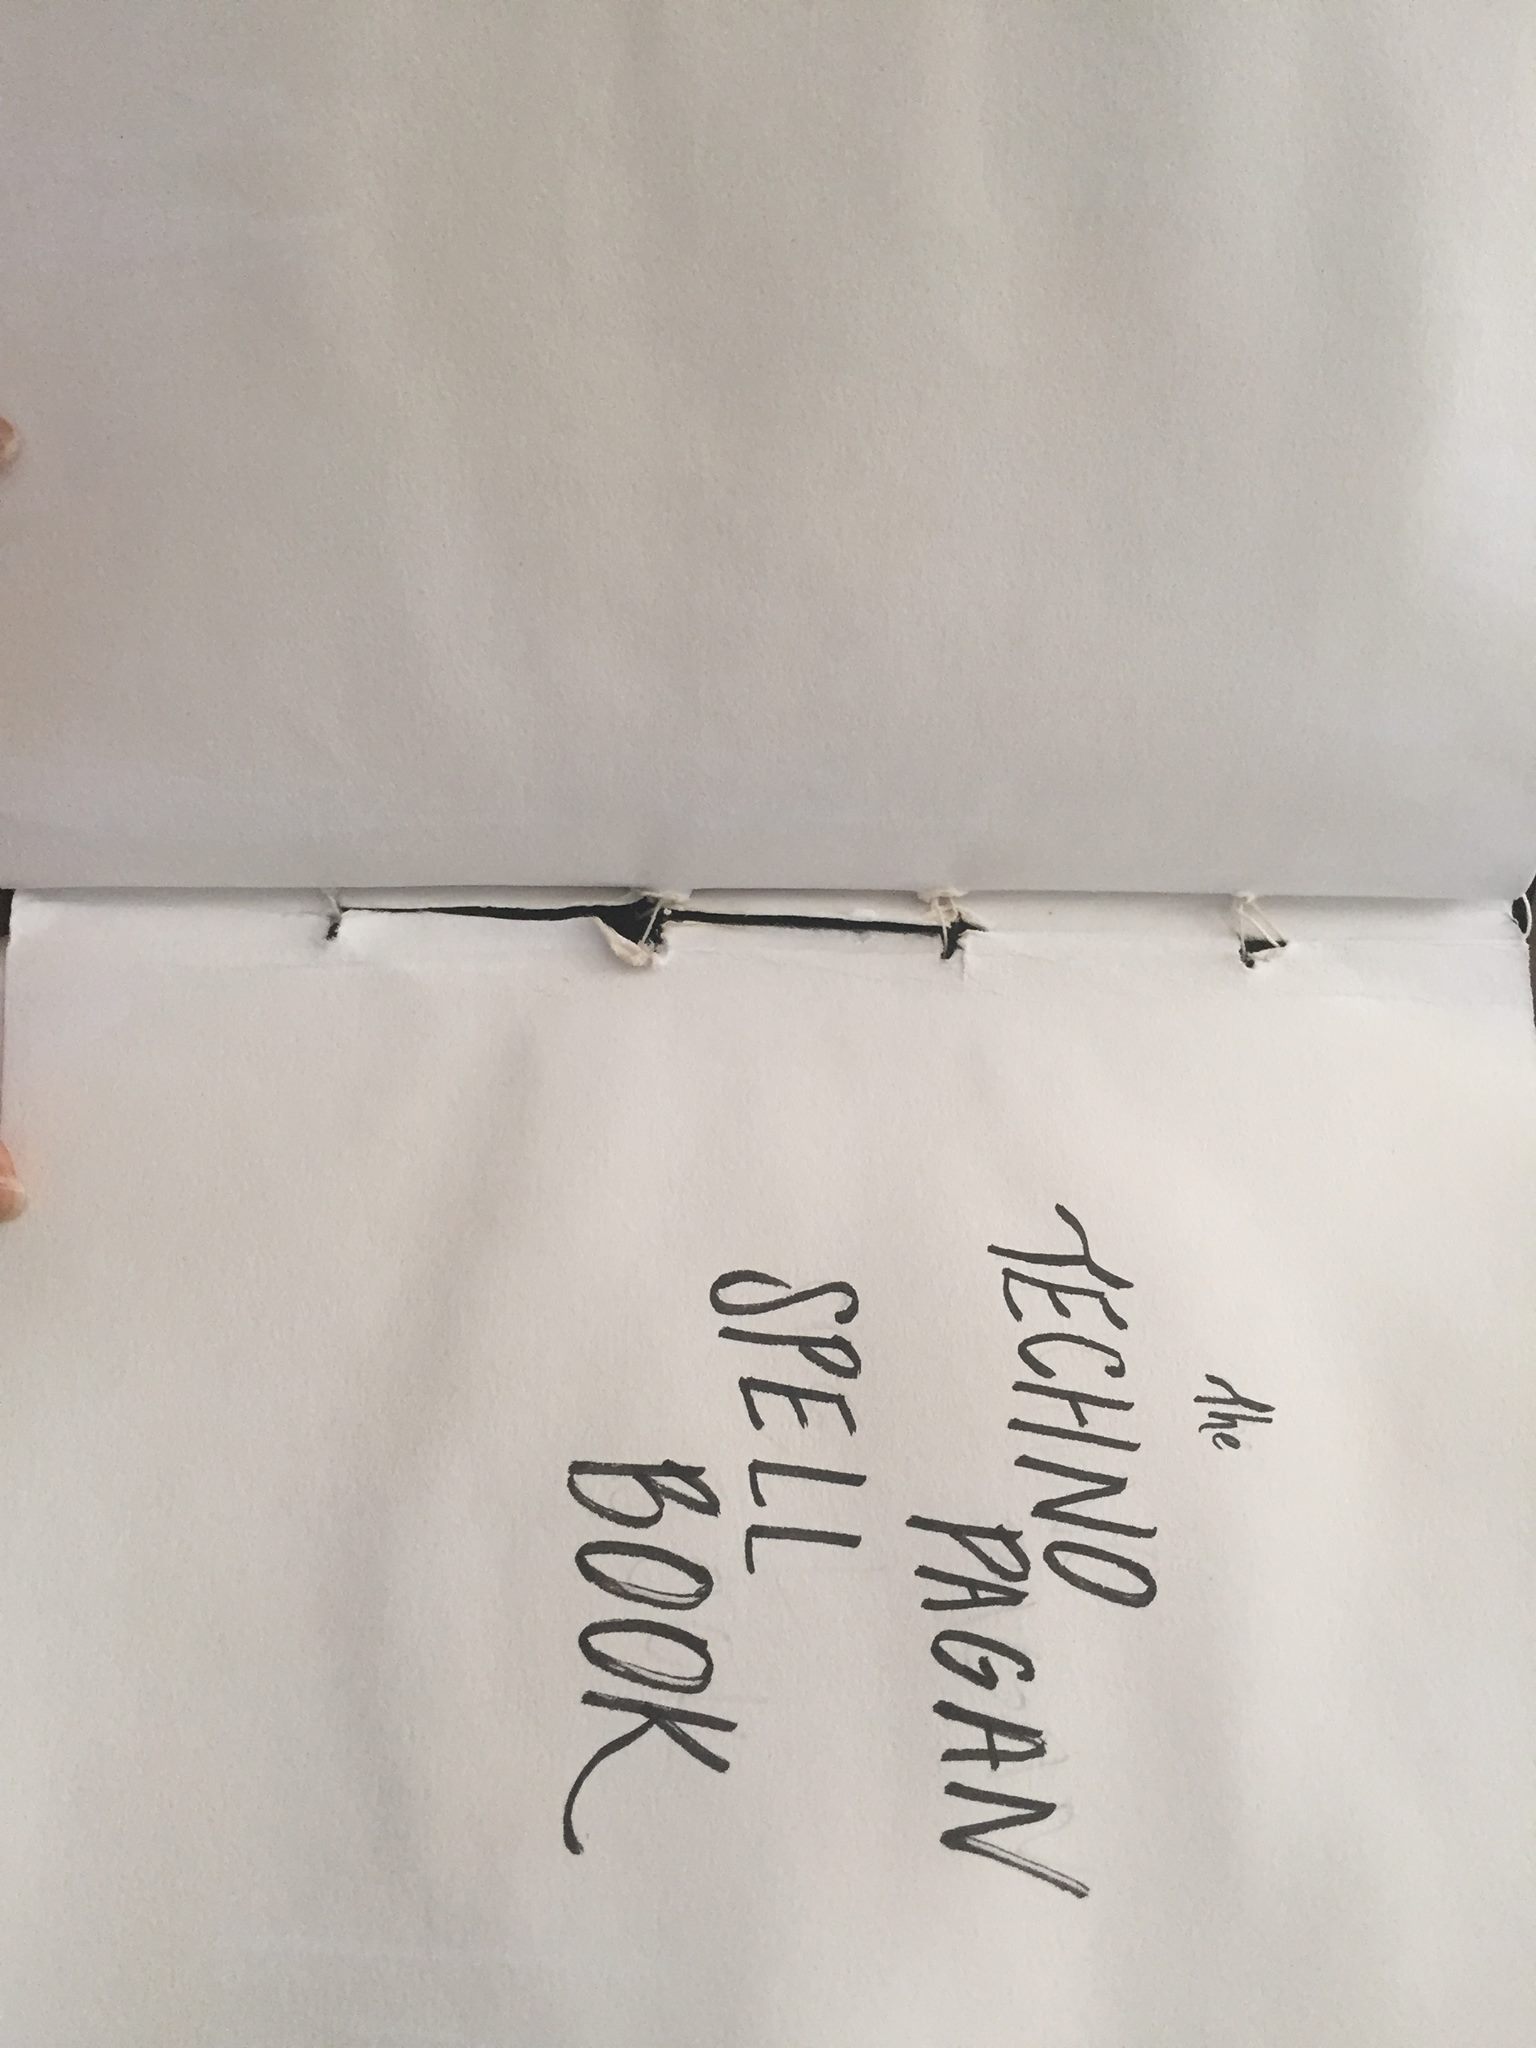 The
TECHNO
PAGAN
SPELL
BOOK